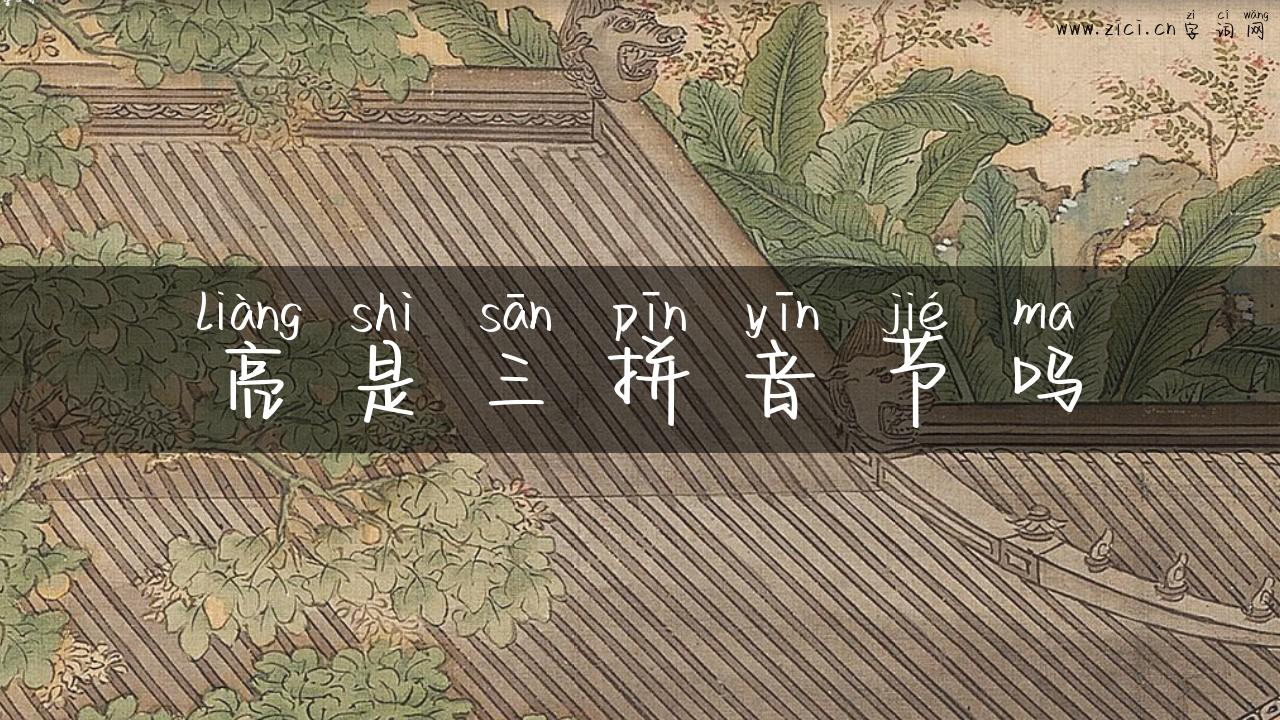 zì cí wǎng
www.zici.cn 字词网
liàng shì sān pīn yīn jié ma
亮是三拼音节吗